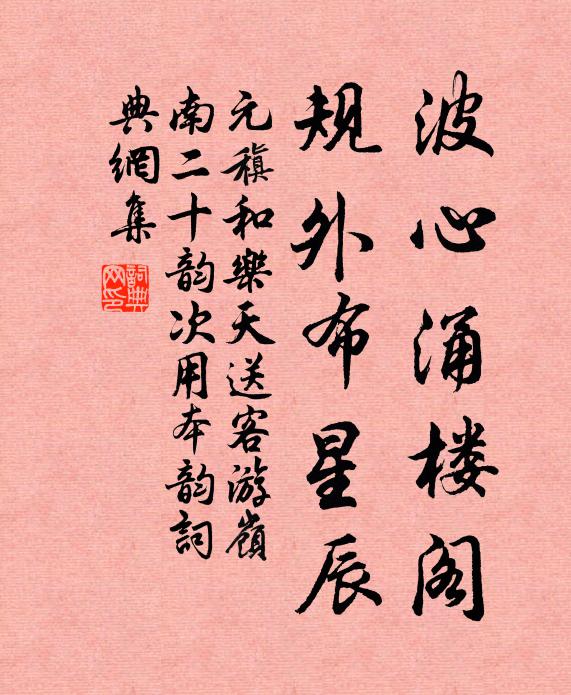 波心涌楼阁
规外布星辰
元稹和樂天送客游嶺
南二十韵次用本韵詞
典網集
詞典
网印